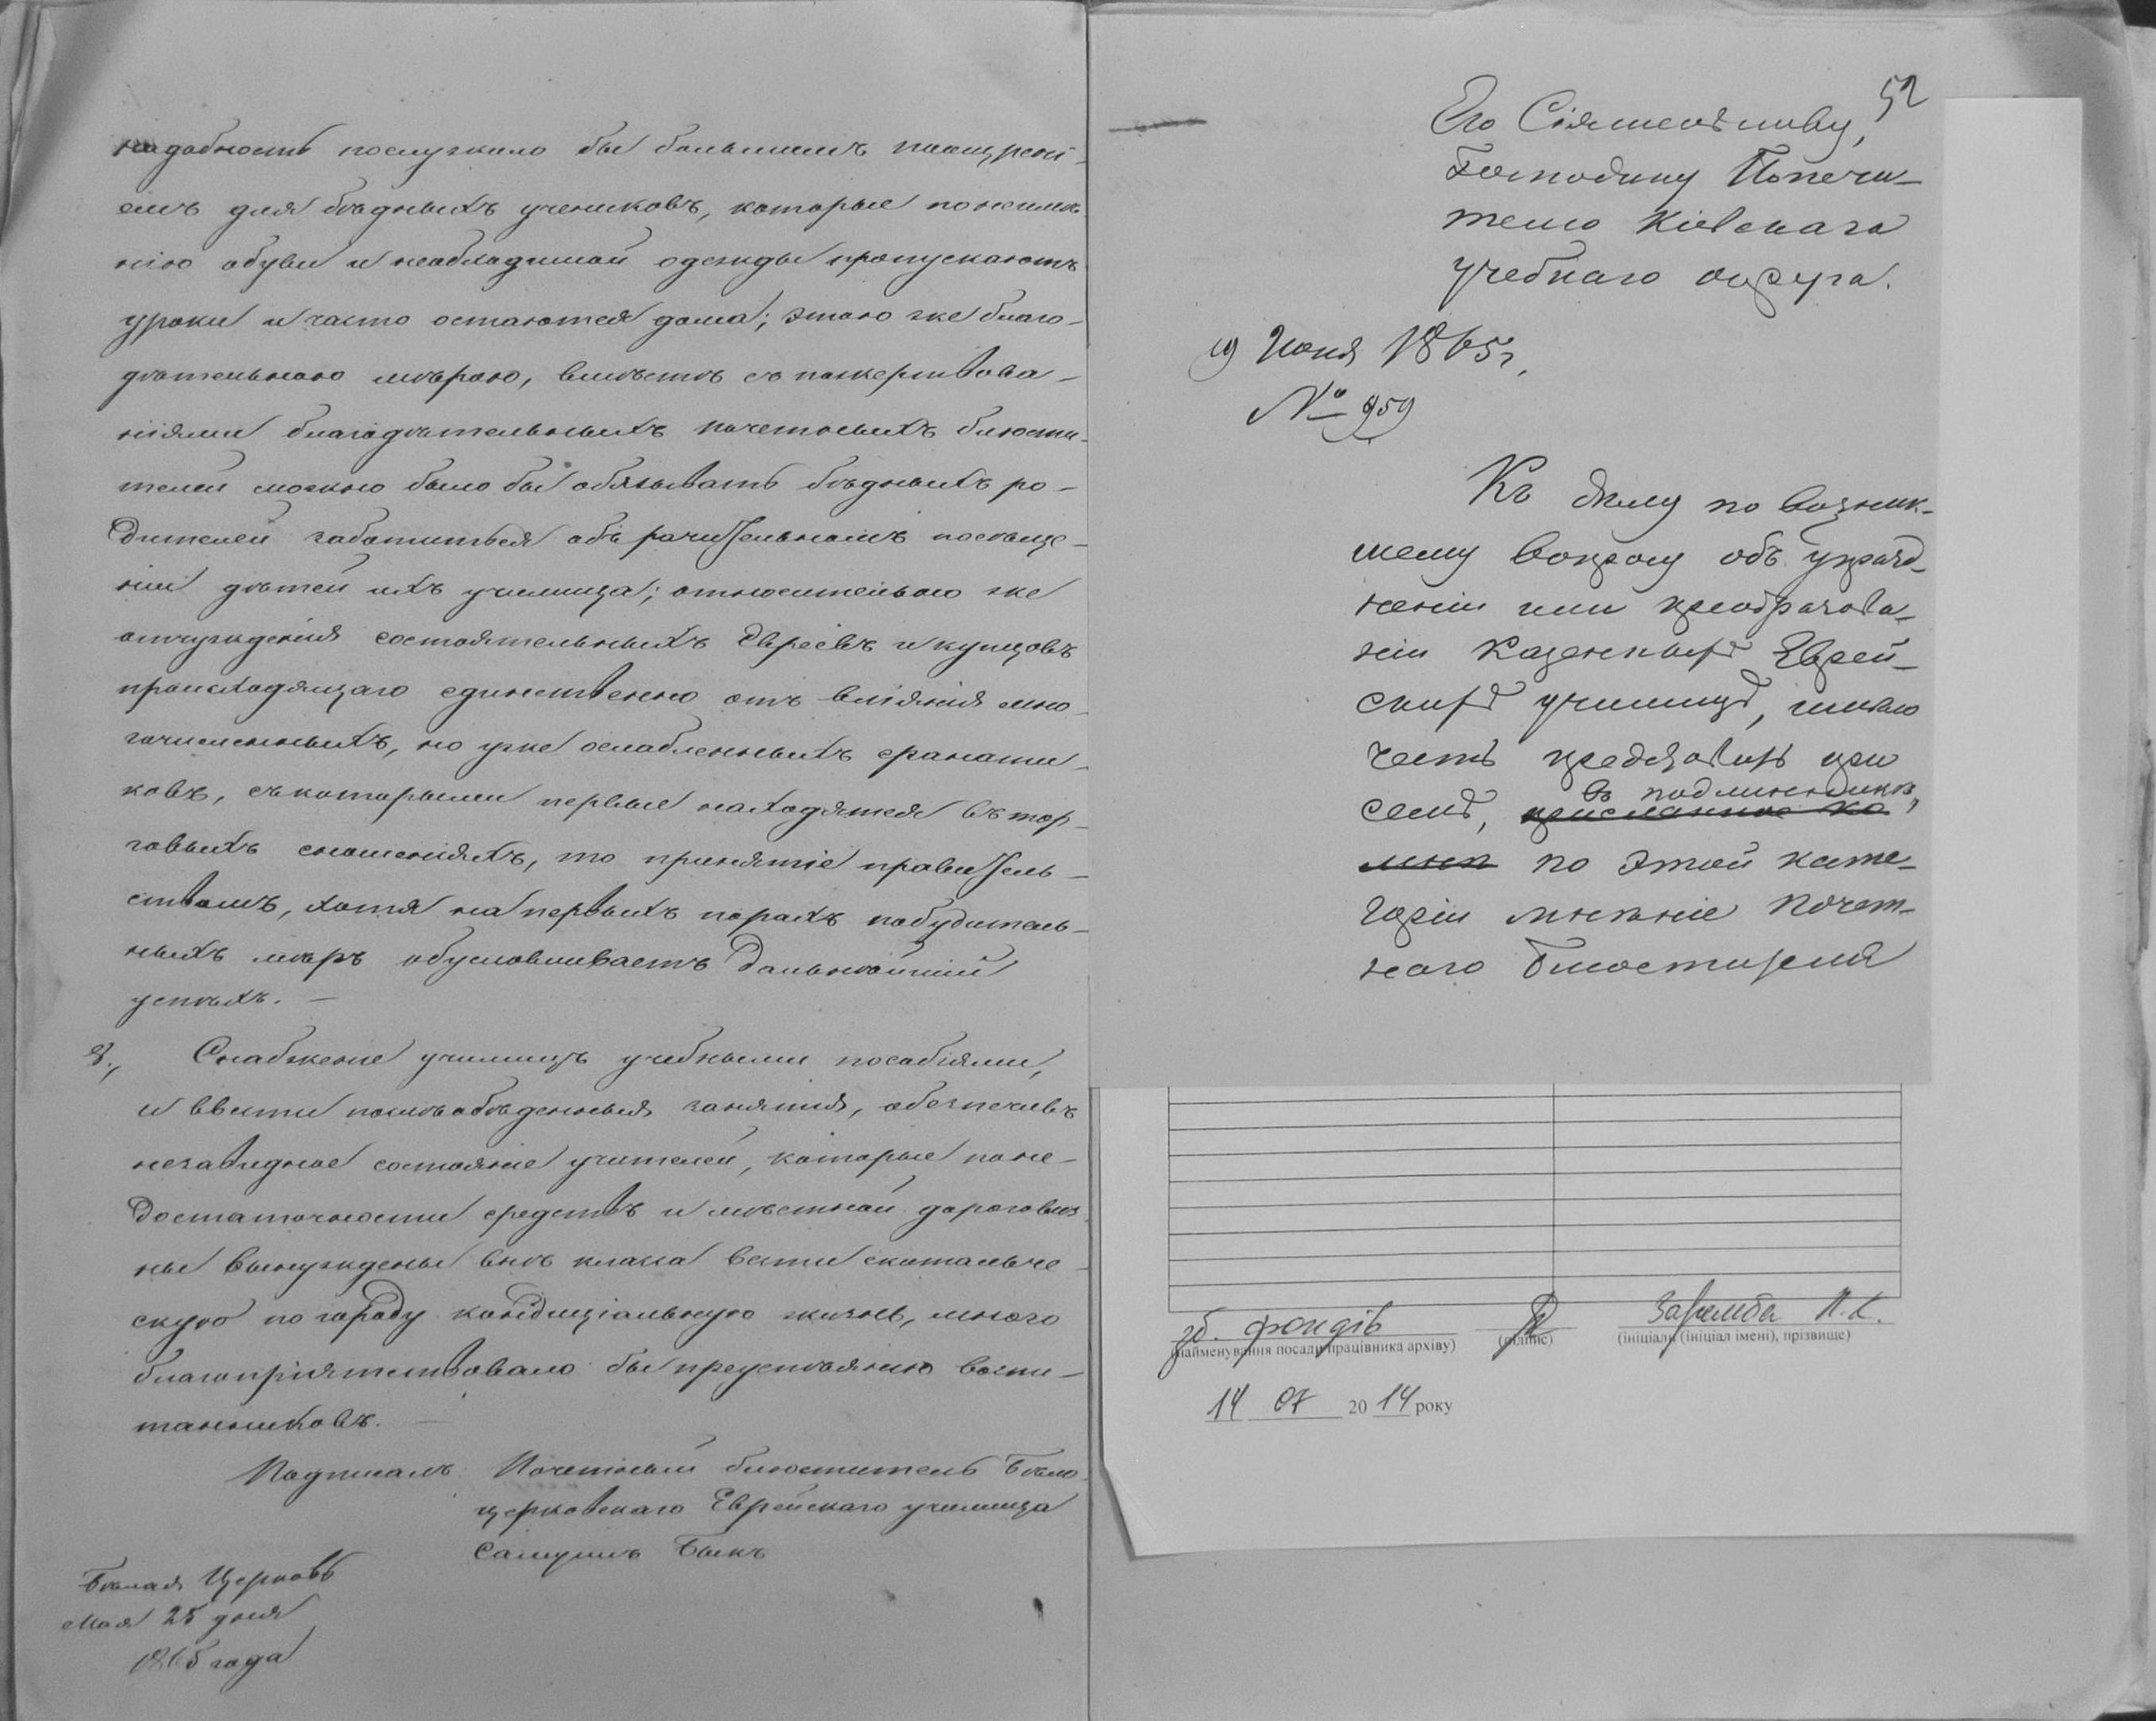 надобность послужило бы большимъ поощрені-
емъ для бѣдныхъ учениковъ, которые по неимѣ-
нію обуви и необходимой одежды пропускаютъ
уроки и часто остаются дома; этою же благо-
дѣтельною мѣрою, вмѣстѣ съ пожертвова-
ніями благодѣтельныхъ почетныхъ блюсти-
телей можно было бы обязывать бѣдныхъ ро-
дителей заботиться объ рачительномъ посѣще-
ніи дѣтей ихъ училища; относительно же
отчужденія состоятельныхъ Евреевъ и купцовъ
происходящаго единственно отъ вліянія мно-
гочисленныхъ, но уже ослабленныхъ фанати-
ковъ, съ которыми первые находятся въ тор-
говыхъ сношеніяхъ, то принятіе правитель-
ствомъ, хотя на первыхъ порахъ побудитель-
ныхъ мѣръ обусловливаетъ дальнѣйшій
успѣхъ. —
3., Снабженіе училищъ учебными пособіями,
и ввести послѣобѣденныя занятія, обезпечивъ
незавидное состояніе учителей, которые по не-
достаточности средствъ и мѣстной дорогови-
ны вынуждены внѣ класса вести скитальче-
скую по городу кондиціальную жизнь, много
благопріятствовало бы преуспѣянію воспи-
танниковъ. —
Подписалъ: Почетный блюститель Бѣло-
церковскаго Еврейскаго училища
Самуилъ Быкъ
Бѣлая Церковь
Мая 25 дня
1865 года
52
Его Сіятельству,
Господину Попечи-
телю Кіевскаго
учебнаго округа.
19 Июня 1865 г.
№ 959
Къ дѣлу по возник-
шему вопросу объ упразд-
неніи или преобразова-
ніи Казенныхъ Еврей-
скихъ училищъ, имѣю
честь представить при
въ подлинникѣ,
семъ, присланное ко
мнѣ по этой кате-
горіи мнѣніе Почет-
наго Блюстителя
зб. фондів
Заремба
(найменування посади працівника архіву)
(підпис)
(ініціали (ініціал імені), прізвище)
14 07 2014 року